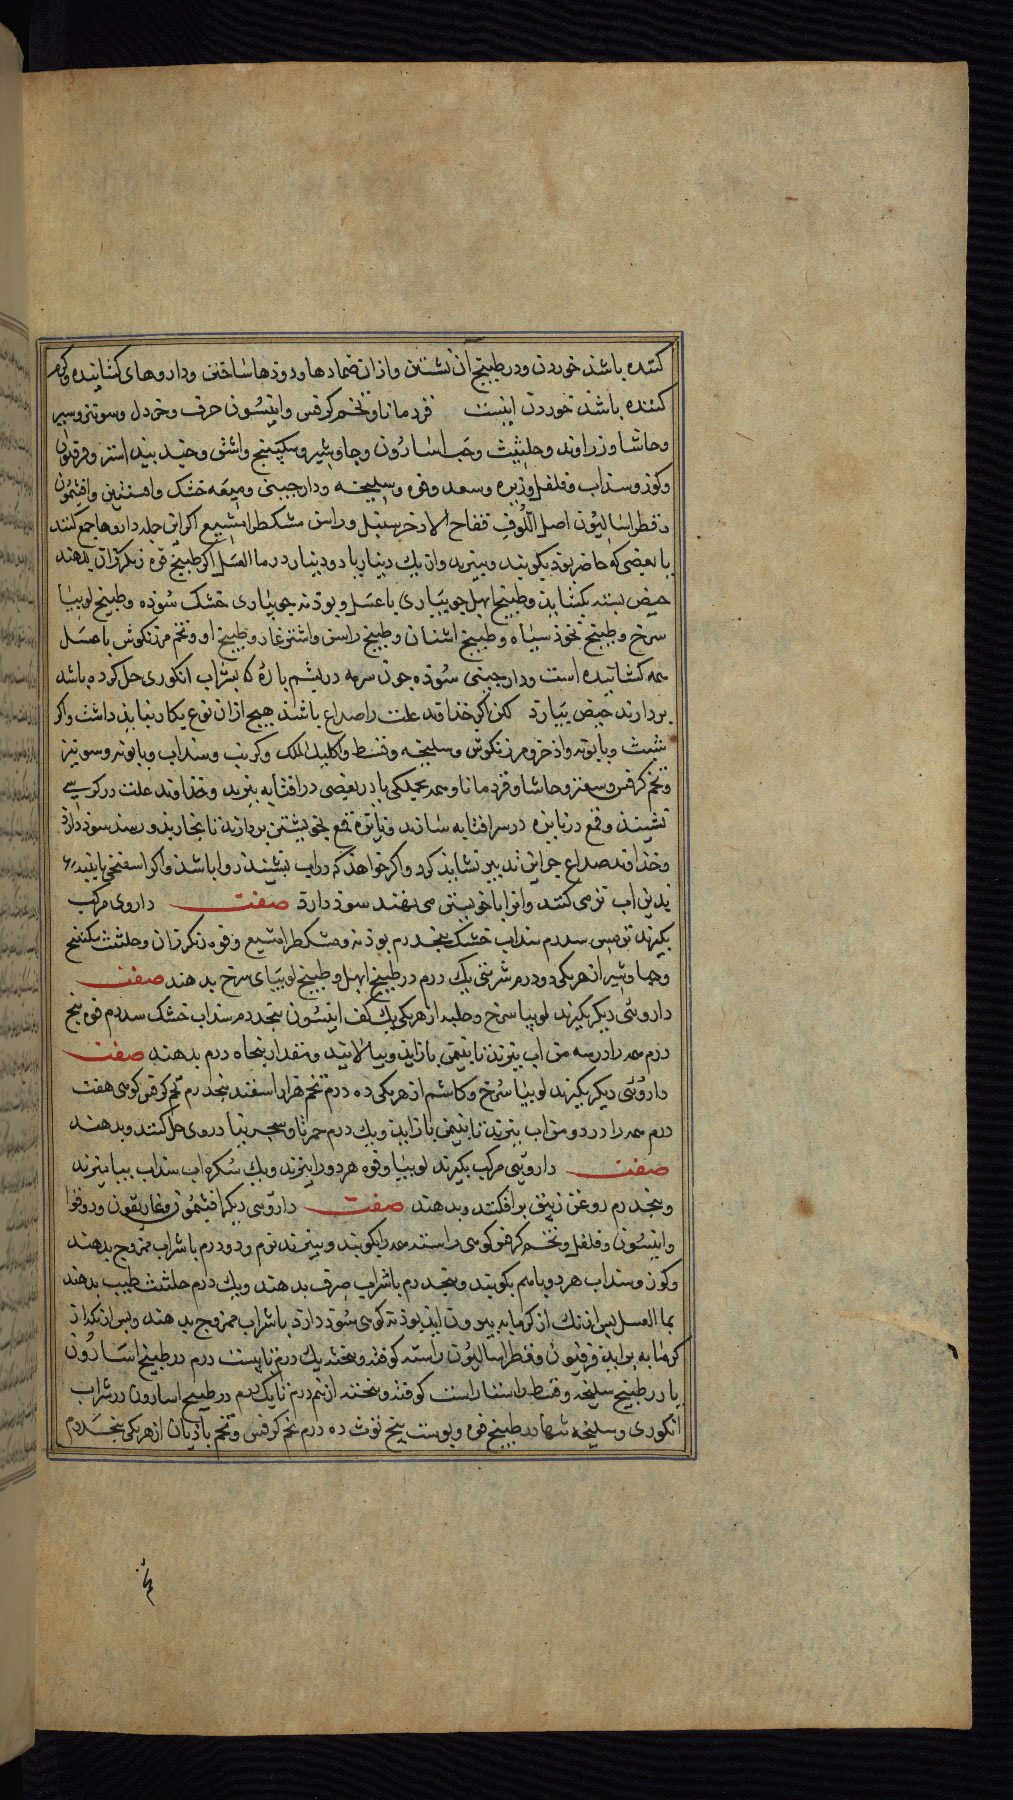 کننده باشذ خوردن و در طبیخ آن نشستن و از ان ضمادها و دوذها ساختن و داروهای کشاینده و کرم
کننده باشذ خوردن اینست قردمانا و تخم کرفس و انیسون حرف و خردل و سونیز و سیر
و حاشا و زراوند و حلتیت و حب اسارون و جاوشیر و سکبینج و اشق و جند بیدستر و فرفیون
و کوز و سذاب و فلفل و زیره و سعد و فوه و سلیخه و دارجینی و میعه خشک و افسنتین و افتیمون
و فطراسالیون اصل اللوف فقاح الاذخر سنبل و راسن مشکطرامشیع اکر این جمله داروها جمع کنند
یا بعضی که حاضر بوذ بکوبند و ببزند و از یک دینار یا دو دینار در ماالعسل اکر طبیخ فوه بدهند
حیض بسته بکشاید و طبیخ ابهل جویباری با عسل و بوذنه جویباری خشک سوذه و طبیخ لوبیا
سرخ و طبیخ نخوذ سیاه و طبیخ اشنان و طبیخ راسن و اشترغار و طبیخ او و تخم مرزنکوش با عسل
همه کشاینده است و دارجینی سوذه جون سرمه در بشم باره کا بشراب انکوری حل کرده باشد
بردارند حیض بیارد لکن اکر خذاوند علت را صداع باشذ هیج ازان نوع بکار نباید داشت و اکر
شبت و بابونه و اذخر و مرزنکوش و سلیخه و قسط و اکلیل الملک و کرنب و سذاب و بابونه و سونیز
و تخم کرفس و سعتر و حاشا و قردمانا و همه بجملکی یا بر بعضی در افتابه ببزند و خذاوند علت در کرسی
نشیند و قمع در نایزه در سر افتابه سازند و نایزه قمع بخویشتن بردارند تا بخار بذو رسد سوذ دارد
و خذاوند صداع جز این تدبیر نشاید کرد و اکر خواهذ که در اب نشیند روا باشذ و اکر اسفنجی یا نمد
بذین اب تر می کنند و انرا با خویشتن می نهند سوذ دارد صفت داروی مرکب
بکیرند ترمس سه درم سذاب خشک بنج درم بوذنه و مشکطرامشیع و فوه از ان و حلتیت سکبینج
و جاوشیر از هر یکی دو درم شربتی یک درم در طبیخ ابهل و طبیخ لوبیای سرخ بدهند صفت
داروئی دیکر بکیرند لوبیا سرخ و حلبه از هر یکی یک کف انیسون بنج درم سذاب خشک سه درم فوه بنج
درم همه را در سه من اب ببزند تا بنیمی باز اید و ببالایند و مقدار بنجاه درم بدهند صفت
داروئی دیکر بکیرند لوبیا سرخ و کاشم از هر یکی ده درم تخم اسفند بنج درم تخم کرفس کوهی هفت
درم همه را در دو من اب ببزند تا بنیمی باز اید و یک درم دروی حل کنند و بدهند
صفت داروئی مرکب بکیرند لوبیا و فوه هر دو را ببزند و یک سکره اب سذاب بیامیزند
و بنج درم روغن زیبق بر افکنند و بدهند صفت داروئی دیکر افتیمون و غاریقون و دوقوا
و انیسون و فلفل و تخم کرفس کوهی راسته همه را بکوبند و ببزند نرم و دو درم با شراب ممزوج بدهند
و کوز و سذاب هر دو با هم بکوبند و بنج درم با شراب صرف بدهند و یک درم حلتیت طیب بدهند
بماالعسل بس از انک از کرمابه بیرون اید بوذنه کوهی سوذ دارد با شراب ممزوج بدهند و بس از انک از
کرمابه براید فرفیون و فطراسالیون راسته کوفته و بخته یک درم تا بیست درم در طبیخ اسارون
یا در طبیخ سلیخه و قسط راستا راست کوفته و بخته از نیم درم تا یک درم در طبیخ اسارون در شراب
انکوری و سلیخه تنها در طبیخ فوه و بوست بیخ توث ده درم تخم کرفس و تخم باذیان از هر یکی بنج درم